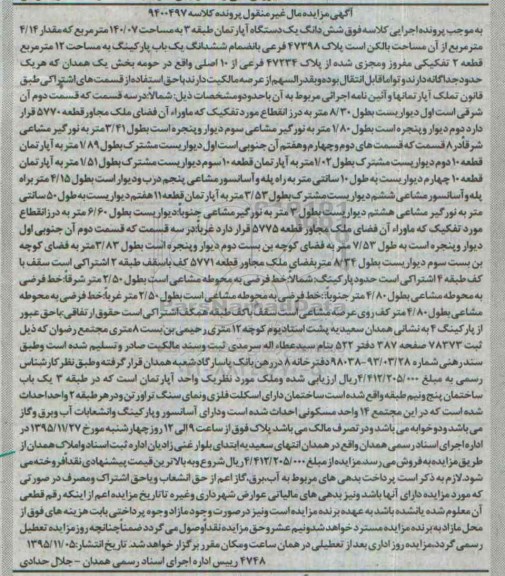 آگهی مزایده مال غیر منقول پرونده کلاسه ۹۴۰۰۴۹۷
به موجب پرونده اجرایی کلاسه فوق شش دانگ یک دستگاه آپارتمان طبقه ۳ به مساحت ۱۴۰/۰۷ مترمربع که مقدار ۴/۱۴
متر مربع از آن مساحت بالکن است پلاک ۴۷۳۹۸ فرعی بانضمام ششدانگ یک باب پارکینگ به مساحت ۱۲ مترمربع
قطعه ۲ تفکیکی مفروز ومجزی شده از پلاک ۴۷۲۳۴ فرعی از ۱۰ اصلی واقع در حومه بخش یک همدان که هریک
حدود جداگانه دارند و تواما قابل انتقال بوده و بقدرالسهم از عرصه مالکیت دارند باحق استفاده از قسمت های اشتراکی طبق
قانون تملک آپارتمانها و آئین نامه اجرائی مربوط به آن باحدود و مشخصات ذیل: شمالا: درسه قسمت که قسمت دوم آن
شرقی است اول دیواریست بطول ۸/۳۰ متر به درز انقطاع مورد تفکیک که ماوراء آن فضای ملک مجاور قطعه ۵۷۷۰ قرار
دارد دوم دیوار وپنجره است بطول ۱/۸۰ متر به نورگیر مشاعی سوم دیوار وپنجره است بطول ۳/۴۱ متر به نورگیر مشاعی
شرقا در ۸ قسمت که قسمت های دوم وچهارم وهفتم آن جنوبی است اول دیواریست مشترک بطول ۱/۸۹ متر به آپارتمان
قطعه ۱۰ دوم دیواریست مشترک بطول ۱/۰۲ متر به آپارتمان قطعه ۱۰ سوم دیواریست مشترک بطول ۱/۵۱ متر به آپارتمان
قطعه ۱۰ چهارم دیواریست به طول ۱۰ سانتی متر به راه پله و آسانسور مشاعی پنجم درب ودیوار است بطول ۴/۱۵ متر براه
پله و آسانسور مشاعی ششم دیواریست مشترک بطول ۳/۵۳ متر به آپارتمان قطعه ۱۱ هفتم دیواریست به طول ۵۰ سانتی
متر به نورگیر مشاعی هشتم دیواریست بطول ۳ متر به نورگیر مشاعی جنوبا: دیواریست بطول ۶/۶۰ متر به درز انقطاع
مورد تفکیک که ماوراء آن فضای ملک مجاور قطعه ۵۷۷۵ قرار دارد غربا: در سه قسمت که قسمت دوم آن جنوبی اول
دیوار وپنجره است به طول ۷/۵۳ متر به فضای کوچه بن بست دوم دیوار وپنجره است بطول ۳/۸۳ متر به فضای کوچه
بن بست سوم دیواریست بطول ۸/۳۴ متر بفضای ملک مجاور قطعه ۵۷۷۱ کف باسقف طبقه ۲ اشتراکی است سقف با
کف طبقه ۴ اشتراکی است حدود پارکینگ: شمالا: خط فرضی به محوطه مشاعی است بطول ۲/۵۰ متر شرقا: خط فرضی
به محوطه مشاعی بطول ۴/۸۰ متر جنوبا: خط فرضی به محوطه مشاعی است بطول ۲/۵۰ متر غربا: خط فرضی به محوطه
مشاعی بطول ۴/۸۰ متر کف روی عرصه مشاعی است سقف باکف طبقه همکف اشتراکی است حقوق ارتفاقی: باحق عبور
از پارکینگ ۴ به نشانی همدان سعیدیه پشت استادیوم کوچه ۱۲ متری رحیمی بن بست ۸ متری مجتمع رضوان که ذیل
ثبت ۷۸۳۷۳ صفحه ۳۸۷ دفتر ۵۲۲ بنام سیدعطاءاله سرمدی ثبت وسند مالکیت صادر و تسلیم شده است وطبق
سند رهنی شماره ۹۸۰۳۸-۹۳/۰۳/۲۸ دفترخانه ۸ در رهن بانک پاسارگاد شعبه همدان قرار گرفته وطبق نظر کارشناس
رسمی به مبلغ ۴/۴۱۲/۲۰۵/۰۰۰ ریال ارزیابی شده وملک مورد نظر یک واحد آپارتمان است که در طبقه ۳ یک باب
ساختمان پنج ونیم طبقه واقع شده است ساختمان دارای اسکلت فلزی ونمای سنگ تراورتن ودر هر طبقه ۲ واحد احداث
شده است که در این مجتمع ۱۴ واحد مسکونی احداث شده است ودارای آسانسور و پارکینگ وانشعابات آب وبرق وگاز
می باشد ودوخوابه می باشد ودر تصرف مالک می باشد پلاک فوق از ساعت ۹ الی ۱۲ روز چهارشنبه مورخ ۱۳۹۵/۱۱/۲۷ در
اداره اجرای اسناد رسمی همدان واقع در همدان انتهای سعیدیه ابتدای بلوار غنی زادیان اداره ثبت اسناد واملاک همدان از
طریق مزایده به فروش می رسد.مزایده از مبلغ ۴/۴۱۲/۲۰۵/۰۰۰ ریال شروع وبه بالاترین قیمت پیشنهادی نقدا فروخته می
شود.لازم به ذکر است پرداخت بدهی های مربوط به آب،برق،گاز اعم از حق انشعاب ویاحق اشتراک ومصرف در صورتی
که مورد مزایده دارای آنها باشد ونیز بدهی های مالیاتی عوارض شهرداری وغیره تا تاریخ مزایده اعم از اینکه رقم قطعی
آن معلوم شده یانشده باشد به عهده برنده مزایده است ونیز در صورت وجود مازاد وجوه پرداختی بابت هزینه های فوق از
محل مازاد به برنده مزایده مسترد خواهد شدونیم عشر وحق مزایده نقدا وصول می گردد ضمنا چنانچه روز مزایده تعطیل
رسمی گردد،مزایده روز اداری بعد از تعطیلی در همان ساعت ومکان مقرر برگزار خواهد شد. تاریخ انتشار:۱۳۹۵/۱۱/۰۵
۴۷۴۸ رییس اداره اجرای اسناد رسمی همدان - جلال حدادی